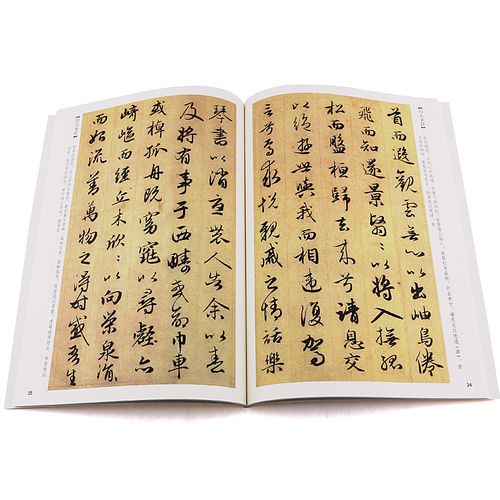 首而遐觀雲無心以出岫鳥倦
飛而知還景翳〻以將入撫孤
松而盤桓歸去来兮請息交
以絕遊世與我而相違復駕
言兮焉求悅親戚之情話樂
34
琴書以消憂農人告余以春
及將有事于西疇或命巾車
或棹孤舟既窈窕以尋壑亦
崎嶇而經丘木欣〻以向榮泉涓
而始流善萬物之得時感吾生
35